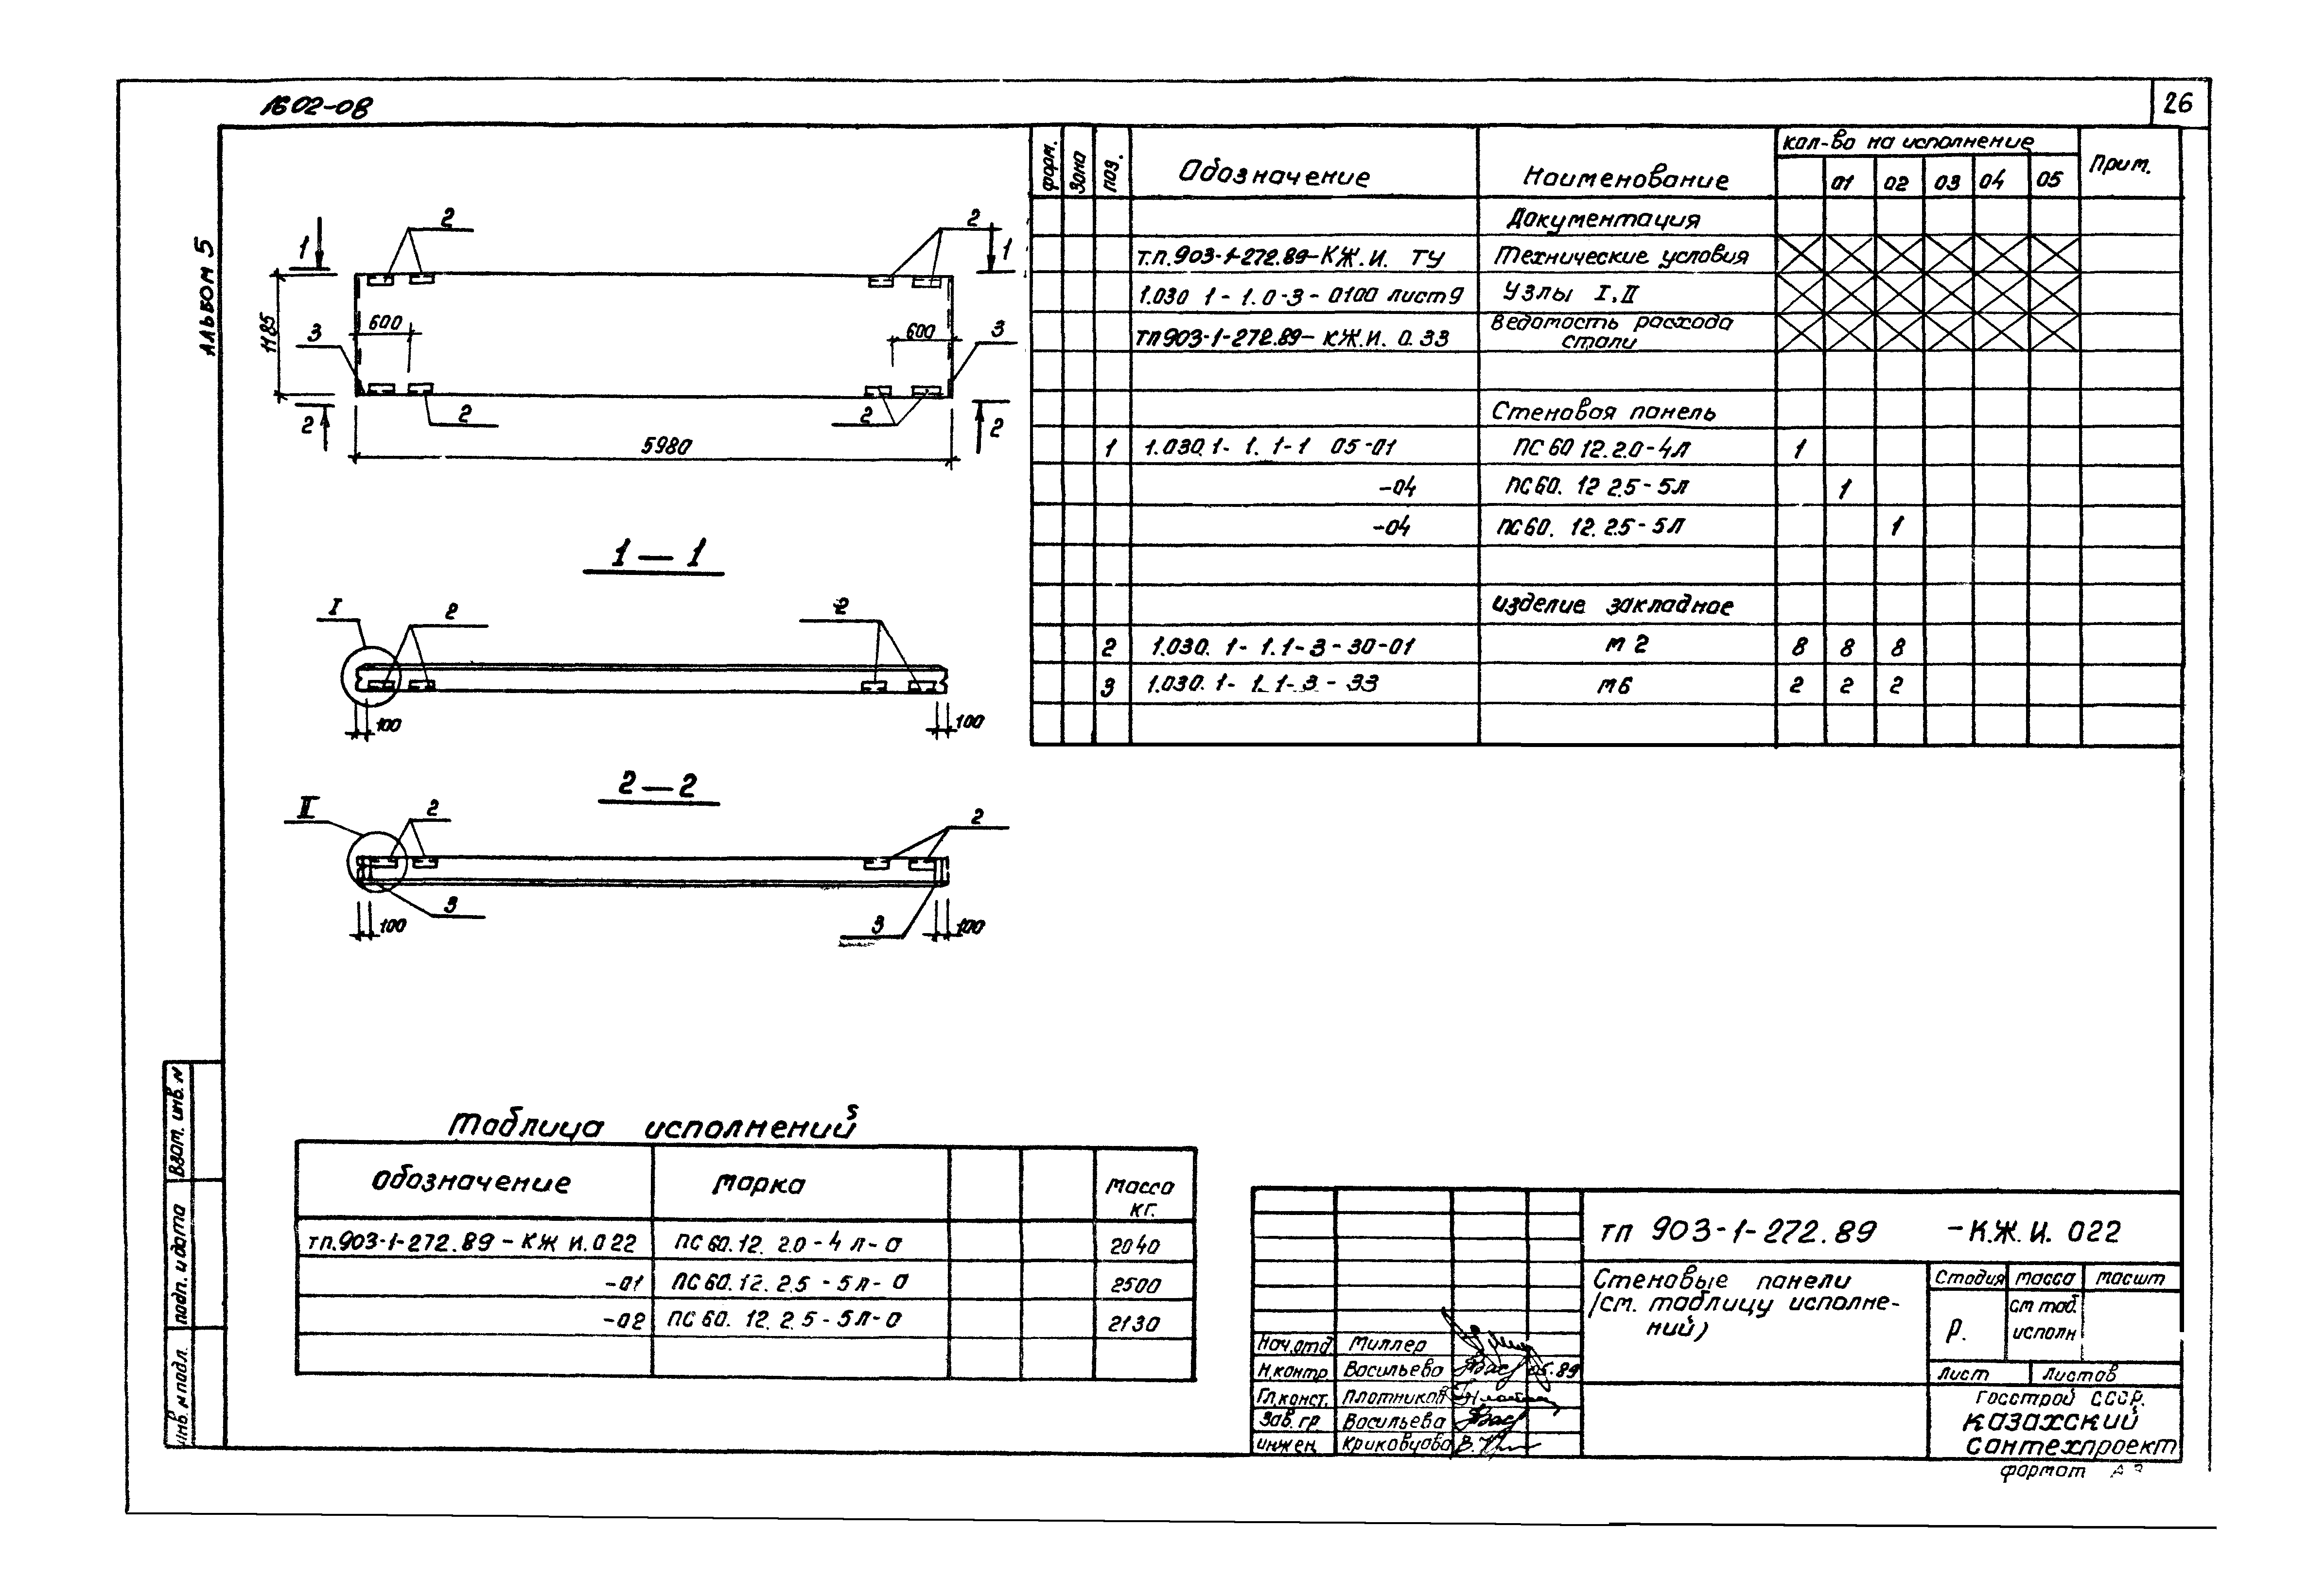 1602-08
26
Альбом 5
1
2
2
1
1185
600
600
3
3
2
2
2
2
5980
1 — 1
I
2
2
100
100
2 — 2
II
2
2
3
3
100
100
Форм.
Зона
Поз.
Обозначение
Наименование
Кол-во на исполнение
Прим.
01 02 03 04 05
Документация
Т.П.903-1-272.89-КЖ.И. ТУ Технические условия
1.030 1-1.0-3-0100 лист 9 Узлы I, II
ТП903-1-272.89-КЖ.И. 0.33 Ведомость расхода
стали
Стеновая панель
1 1.030.1-1.1-1 05-01 ПС 60 12.2.0-4Л 1
-04 ПС60. 12 2.5-5Л 1
-04 ПС60. 12. 2.5-5Л 1
Изделие закладное
2 1.030. 1-1.1-3-30-01 М 2 8 8 8
3 1.030. 1-1.1-3-33 М6 2 2 2
Таблица исполнений
Обозначение Марка Масса
кг.
ТП.903-1-272.89-КЖ И.022 ПС 60.12. 2.0-4 Л-а 2040
-01 ПС 60.12. 2.5-5Л-а 2500
-02 ПС 60. 12. 2.5-5Л-а 2130
Взам. инв. N
Подп. и дата
Инв. N подл.
ТП 903-1-272.89 -К.Ж.И. 022
Стеновые панели
/см. таблицу исполне-
ний)
Стадия Масса Масшт
Р.
см таб.
исполн
Лист Листов
Госстрой СССР.
Казахский
Сантехпроект
Нач.отд Миллер
Н.контр Васильева 05.89
Гл.конст. Плотников
Зав. гр Васильева
Инжен. Криковцова
формат А3